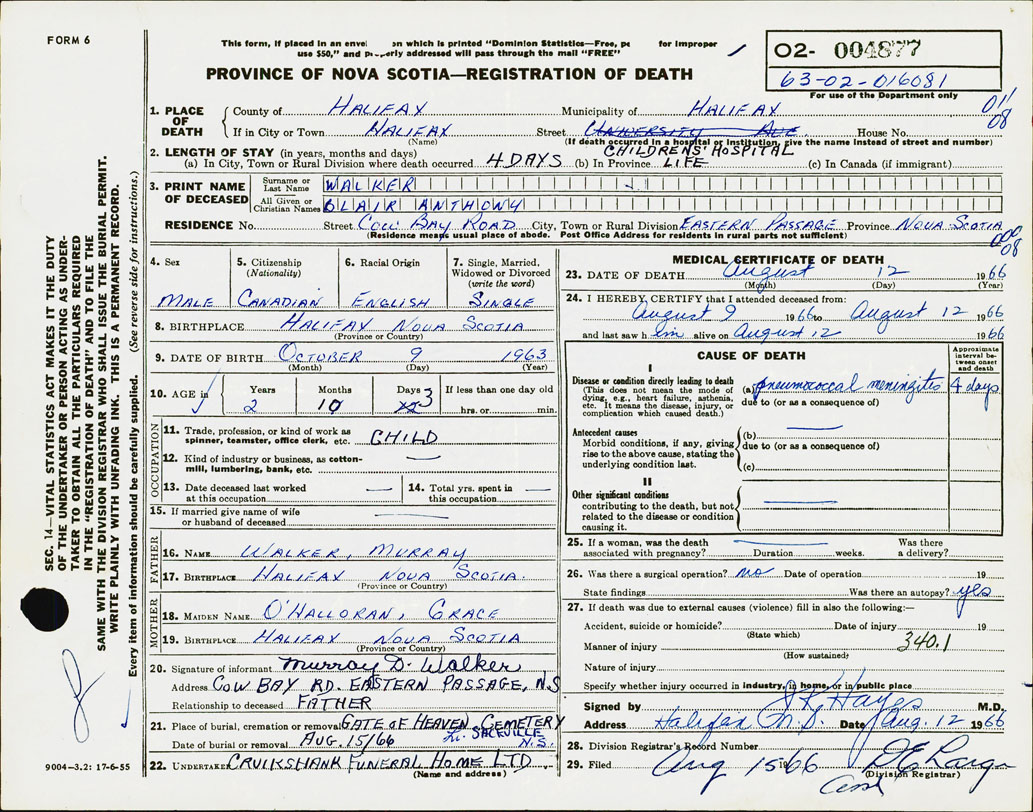 FORM 6
This form, if placed in an envel on which is printed "Dominion Statistics—Free, pe for improper
use $50," and properly addressed will pass through the mail "FREE"
PROVINCE OF NOVA SCOTIA—REGISTRATION OF DEATH
O2- 004877
63-02-016081
For use of the Department only
011
08
1. PLACE OF DEATH
County of HALIFAX Municipality of HALIFAX
If in City or Town HALIFAX Street UNIVERSITY AVE House No.
(Name) (If death occurred in a hospital or institution, give the name instead of street and number)
CHILDRENS' HOSPITAL
2. LENGTH OF STAY (in years, months and days)
(a) In City, Town or Rural Division where death occurred 4 DAYS (b) In Province LIFE (c) In Canada (if immigrant)
3. PRINT NAME OF DECEASED
Surname or Last Name WALKER
All Given or Christian Names BLAIR ANTHONY
RESIDENCE No. Street COW BAY ROAD City, Town or Rural Division EASTERN PASSAGE Province NOVA SCOTIA
(Residence means usual place of abode. Post Office Address for residents in rural parts not sufficient)
08
4. Sex MALE
5. Citizenship (Nationality) CANADIAN
6. Racial Origin ENGLISH
7. Single, Married, Widowed or Divorced (write the word) SINGLE
8. BIRTHPLACE HALIFAX NOVA SCOTIA
(Province or Country)
9. DATE OF BIRTH OCTOBER 9 1963
(Month) (Day) (Year)
10. AGE in Years 2 Months 10 Days 3 If less than one day old hrs. or min.
OCCUPATION
11. Trade, profession, or kind of work as spinner, teamster, office clerk, etc. CHILD
12. Kind of industry or business, as cotton-mill, lumbering, bank, etc. —
13. Date deceased last worked at this occupation —
14. Total yrs. spent in this occupation —
15. If married give name of wife or husband of deceased —
FATHER
16. NAME WALKER, MURRAY
17. BIRTHPLACE HALIFAX NOVA SCOTIA.
(Province or Country)
MOTHER
18. MAIDEN NAME O'HALLORAN, GRACE
19. BIRTHPLACE HALIFAX NOVA SCOTIA
(Province or Country)
20. Signature of informant Murray D. Walker
Address COW BAY RD. EASTERN PASSAGE, N.S
Relationship to deceased FATHER
21. Place of burial, cremation or removal GATE OF HEAVEN CEMETERY
Lr. SACKVILLE N.S.
Date of burial or removal AUG. 15/66
22. UNDERTAKER CRUIKSHANK FUNERAL HOME LTD.
(Name and address)
MEDICAL CERTIFICATE OF DEATH
23. DATE OF DEATH August 12 1966
(Month) (Day) (Year)
24. I HEREBY CERTIFY that I attended deceased from:
August 9 1966 to August 12 1966
and last saw him alive on August 12 1966
CAUSE OF DEATH
Approximate interval between onset and death
I
Disease or condition directly leading to death (a) pneumococcal meningitis 4 days
(This does not mean the mode of dying, e.g., heart failure, asthenia, etc. It means the disease, injury, or complication which caused death.)
due to (or as a consequence of)
Antecedent causes (b) —
Morbid conditions, if any, giving rise to the above cause, stating the underlying condition last.
due to (or as a consequence of)
(c)
II
Other significant conditions —
contributing to the death, but not related to the disease or condition causing it.
25. If a woman, was the death associated with pregnancy? — Duration weeks. Was there a delivery?
26. Was there a surgical operation? no Date of operation 19
State findings Was there an autopsy? yes
27. If death was due to external causes (violence) fill in also the following:—
Accident, suicide or homicide? Date of injury 19
(State which)
Manner of injury 340.1
(How sustained)
Nature of injury
Specify whether injury occurred in industry, in home, or in public place
Signed by Hayes M.D.
Address Halifax N.S. Date Aug. 12 1966
28. Division Registrar's Record Number
29. Filed Aug 15 1966
(Division Registrar)
SEC. 14—VITAL STATISTICS ACT MAKES IT THE DUTY
OF THE UNDERTAKER OR PERSON ACTING AS UNDER-
TAKER TO OBTAIN ALL THE PARTICULARS REQUIRED
IN THE "REGISTRATION OF DEATH" AND TO FILE THE
SAME WITH THE DIVISION REGISTRAR WHO SHALL ISSUE THE BURIAL PERMIT.
WRITE PLAINLY WITH UNFADING INK. THIS IS A PERMANENT RECORD.
Every item of information should be carefully supplied. (See reverse side for instructions.)
9004—3.2: 17-6-55